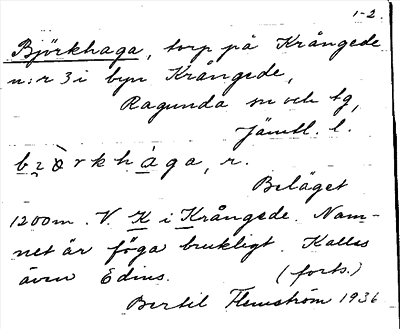 1-2.
Björkhaga, torp på Krångede
n:r 3 i byn Krångede,
Ragunda sn och tg,
Jämtl. l.
Beläget
1200 m. V. K i Krångede. Nam-
net är föga brukligt. Kallas
även Edins. (forts.)
Bertil Flemström 1936